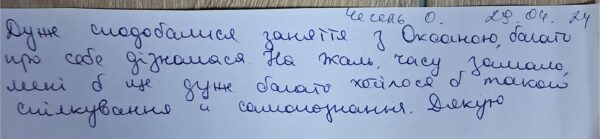 Чечень О. 29.04.24
Дуже сподобалися заняття з Оксаною, багато
про себе дізналася. На жаль, часу замало,
мені б ще дуже багато хотілося б такого
спілкування й самопізнання. Дякую